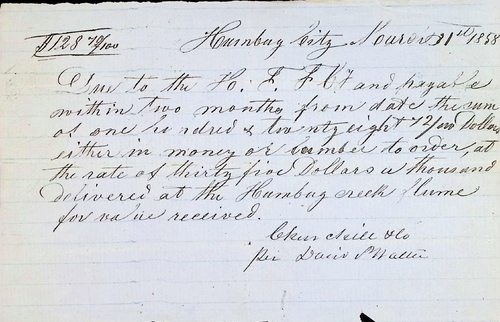 $128 72/100 Humbug City November 1st 1858
Due to the H. F. F. Co and payable
within two months from date the sum
of one hundred & twenty eight 72/100 Dollars
either in money or lumber to order, at
the rate of thirty five Dollars a thousand
delivered at the Humbug creek flume
for value received.
Churchill & Co
per David